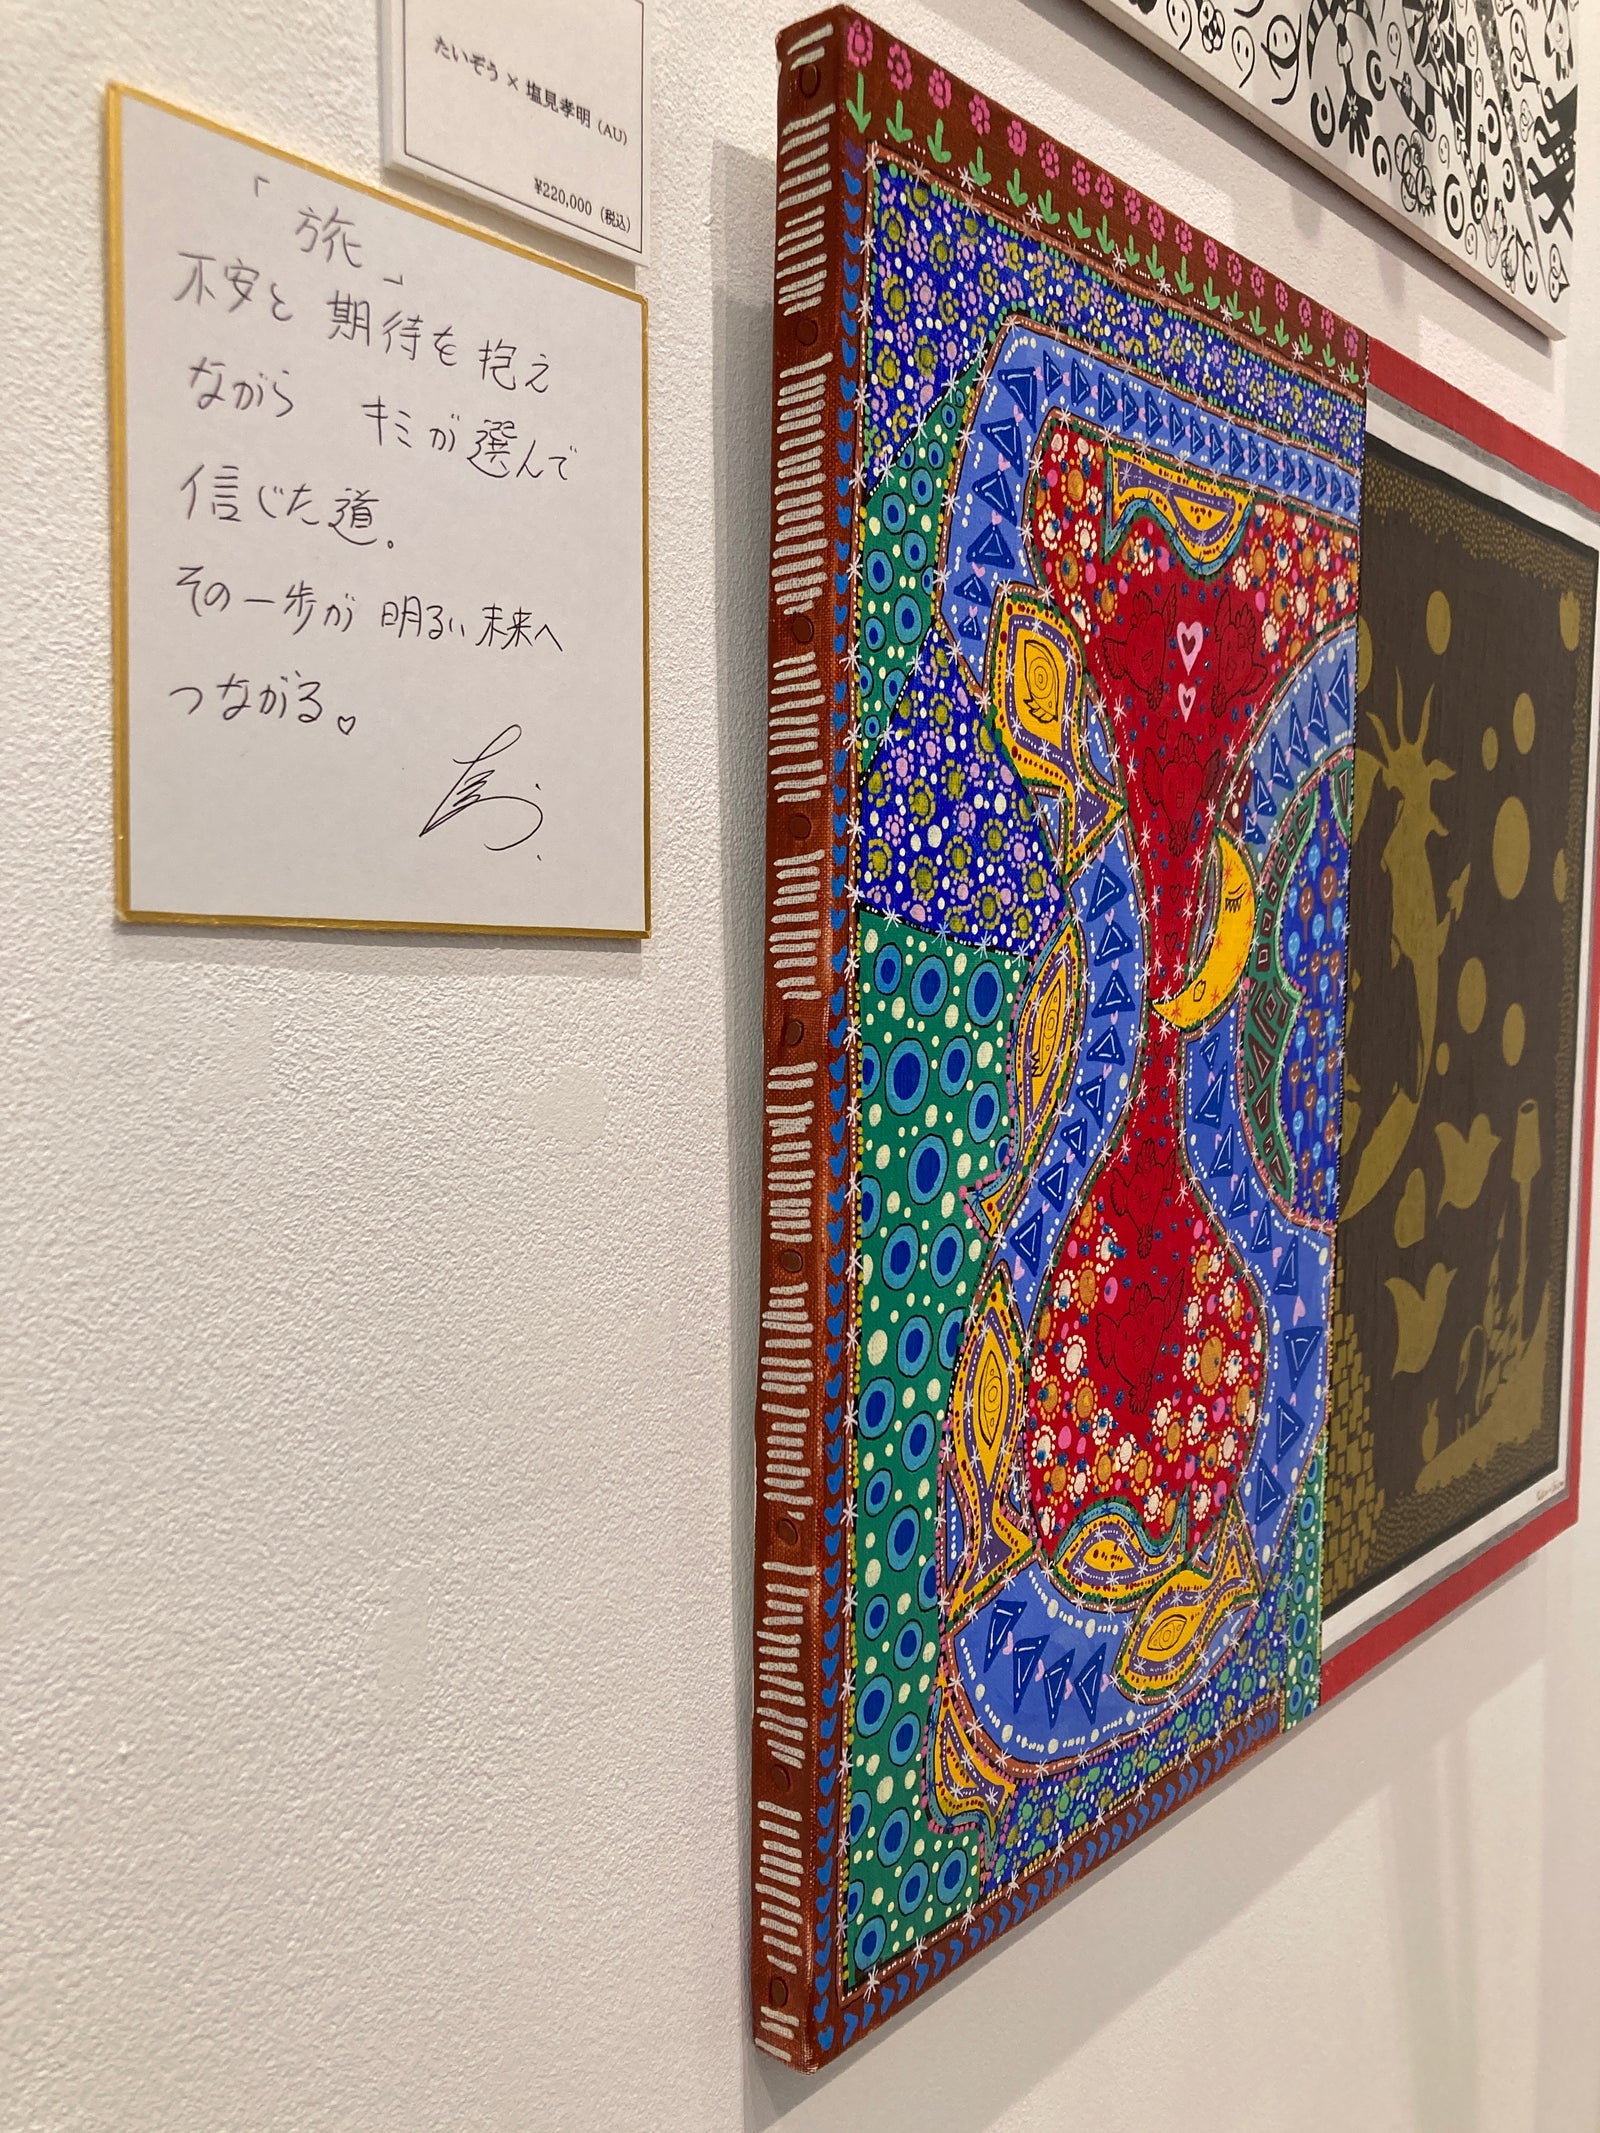 たいぞう × 塩見孝明 (AU)
¥220,000 (税込)
「旅」
不安と 期待を 抱え
ながら キミが選んで
信じた道。
その一歩が 明るい未来へ
つながる。